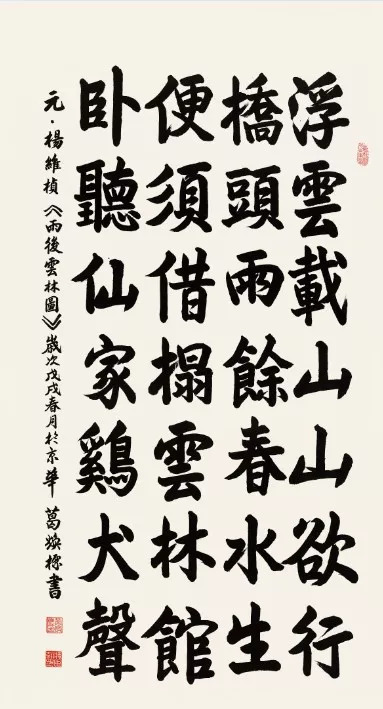 浮雲載山山欲行
橋頭雨餘春水生
便須借榻雲林館
卧聽仙家鷄犬聲
元·楊維楨《雨後雲林圖》歲次戊戌春月於京華 葛煥標書